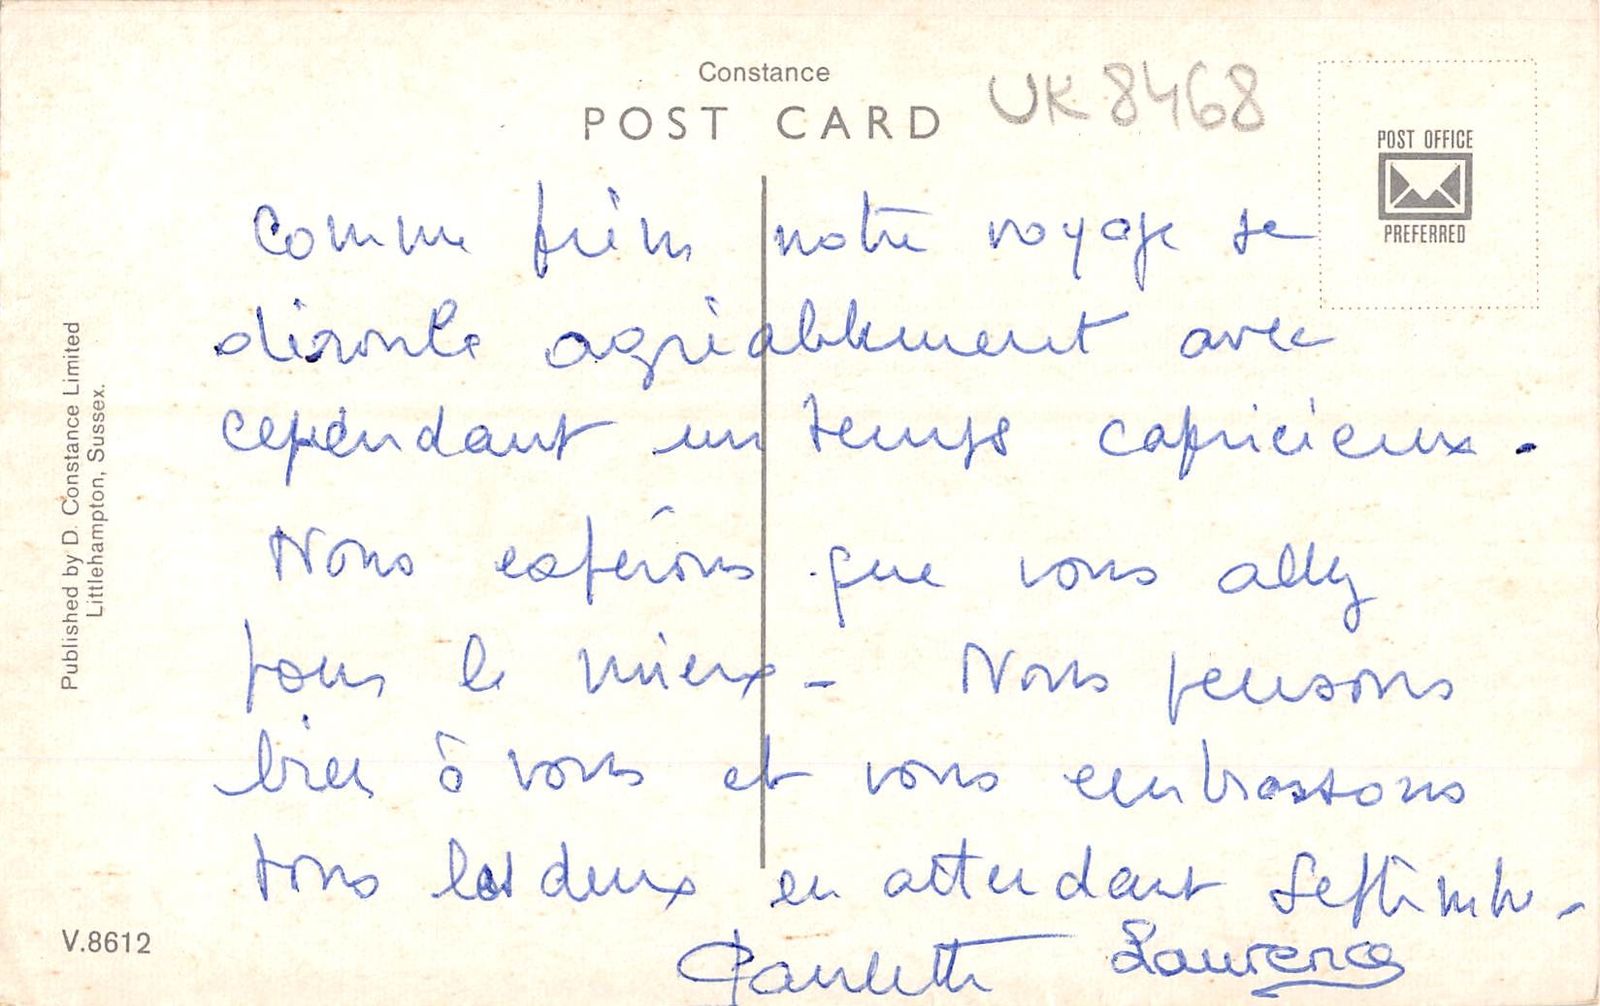 Constance
POST CARD
UK 8468
POST OFFICE
PREFERRED
Comme prévu notre voyage se
déroule agréablement avec
cependant un temps capricieux.
Nous espérons que vous allez
pour le mieux - Nous pensons
bien à vous et vous embrassons
tous les deux en attendant Septembre -
Paulette Laurence
Published by D. Constance Limited
Littlehampton, Sussex.
V.8612